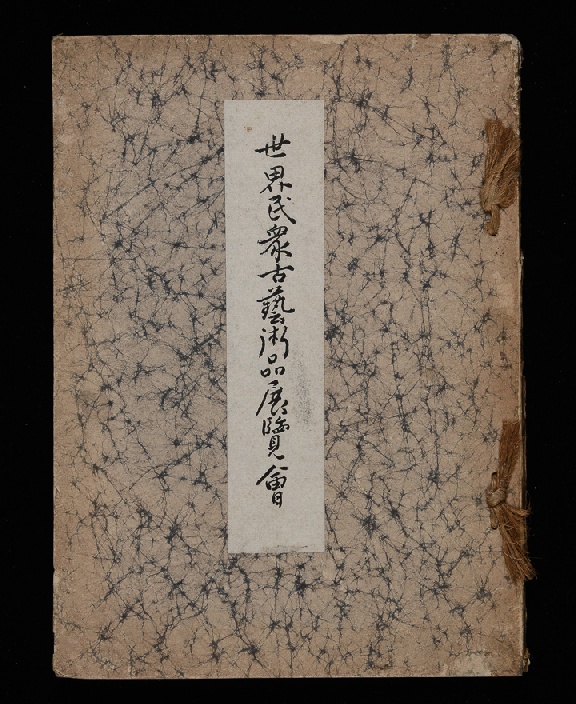 世界民衆古藝術品展覽會